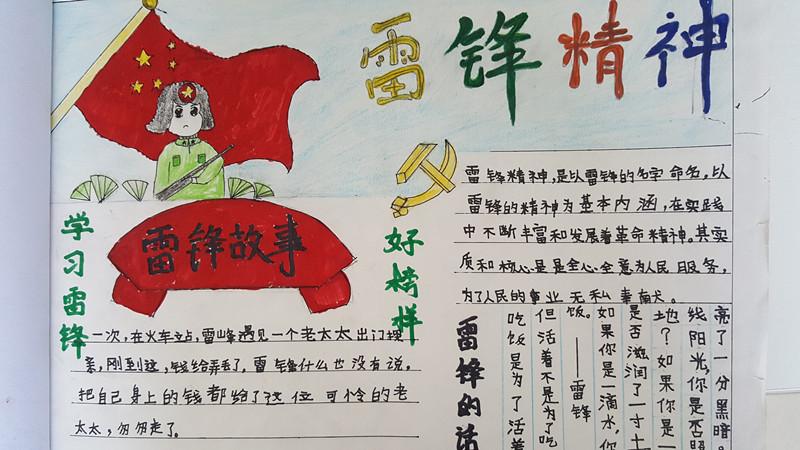 雷锋精神
学习雷锋
雷锋故事
好榜样
雷锋精神,是以雷锋的名字命名,以
雷锋的精神为基本内涵,在实践
中不断丰富和发展着革命精神。其实
质和核心是是全心全意为人民服务,
为了人民的事业无私奉献。
一次,在火车站,雷峰遇见一个老太太出门探
亲,刚到这,钱给弄丢了,雷锋什么也没有说,
把自己身上的钱都给了这位可怜的老
太太,匆匆走了。
雷锋的话
吃饭是为了活着
但活着不是为了吃
饭。——雷锋
如果你是一滴水,你
是否滋润了一寸土
地?如果你是一
线阳光,你是否照
亮了一分黑暗。